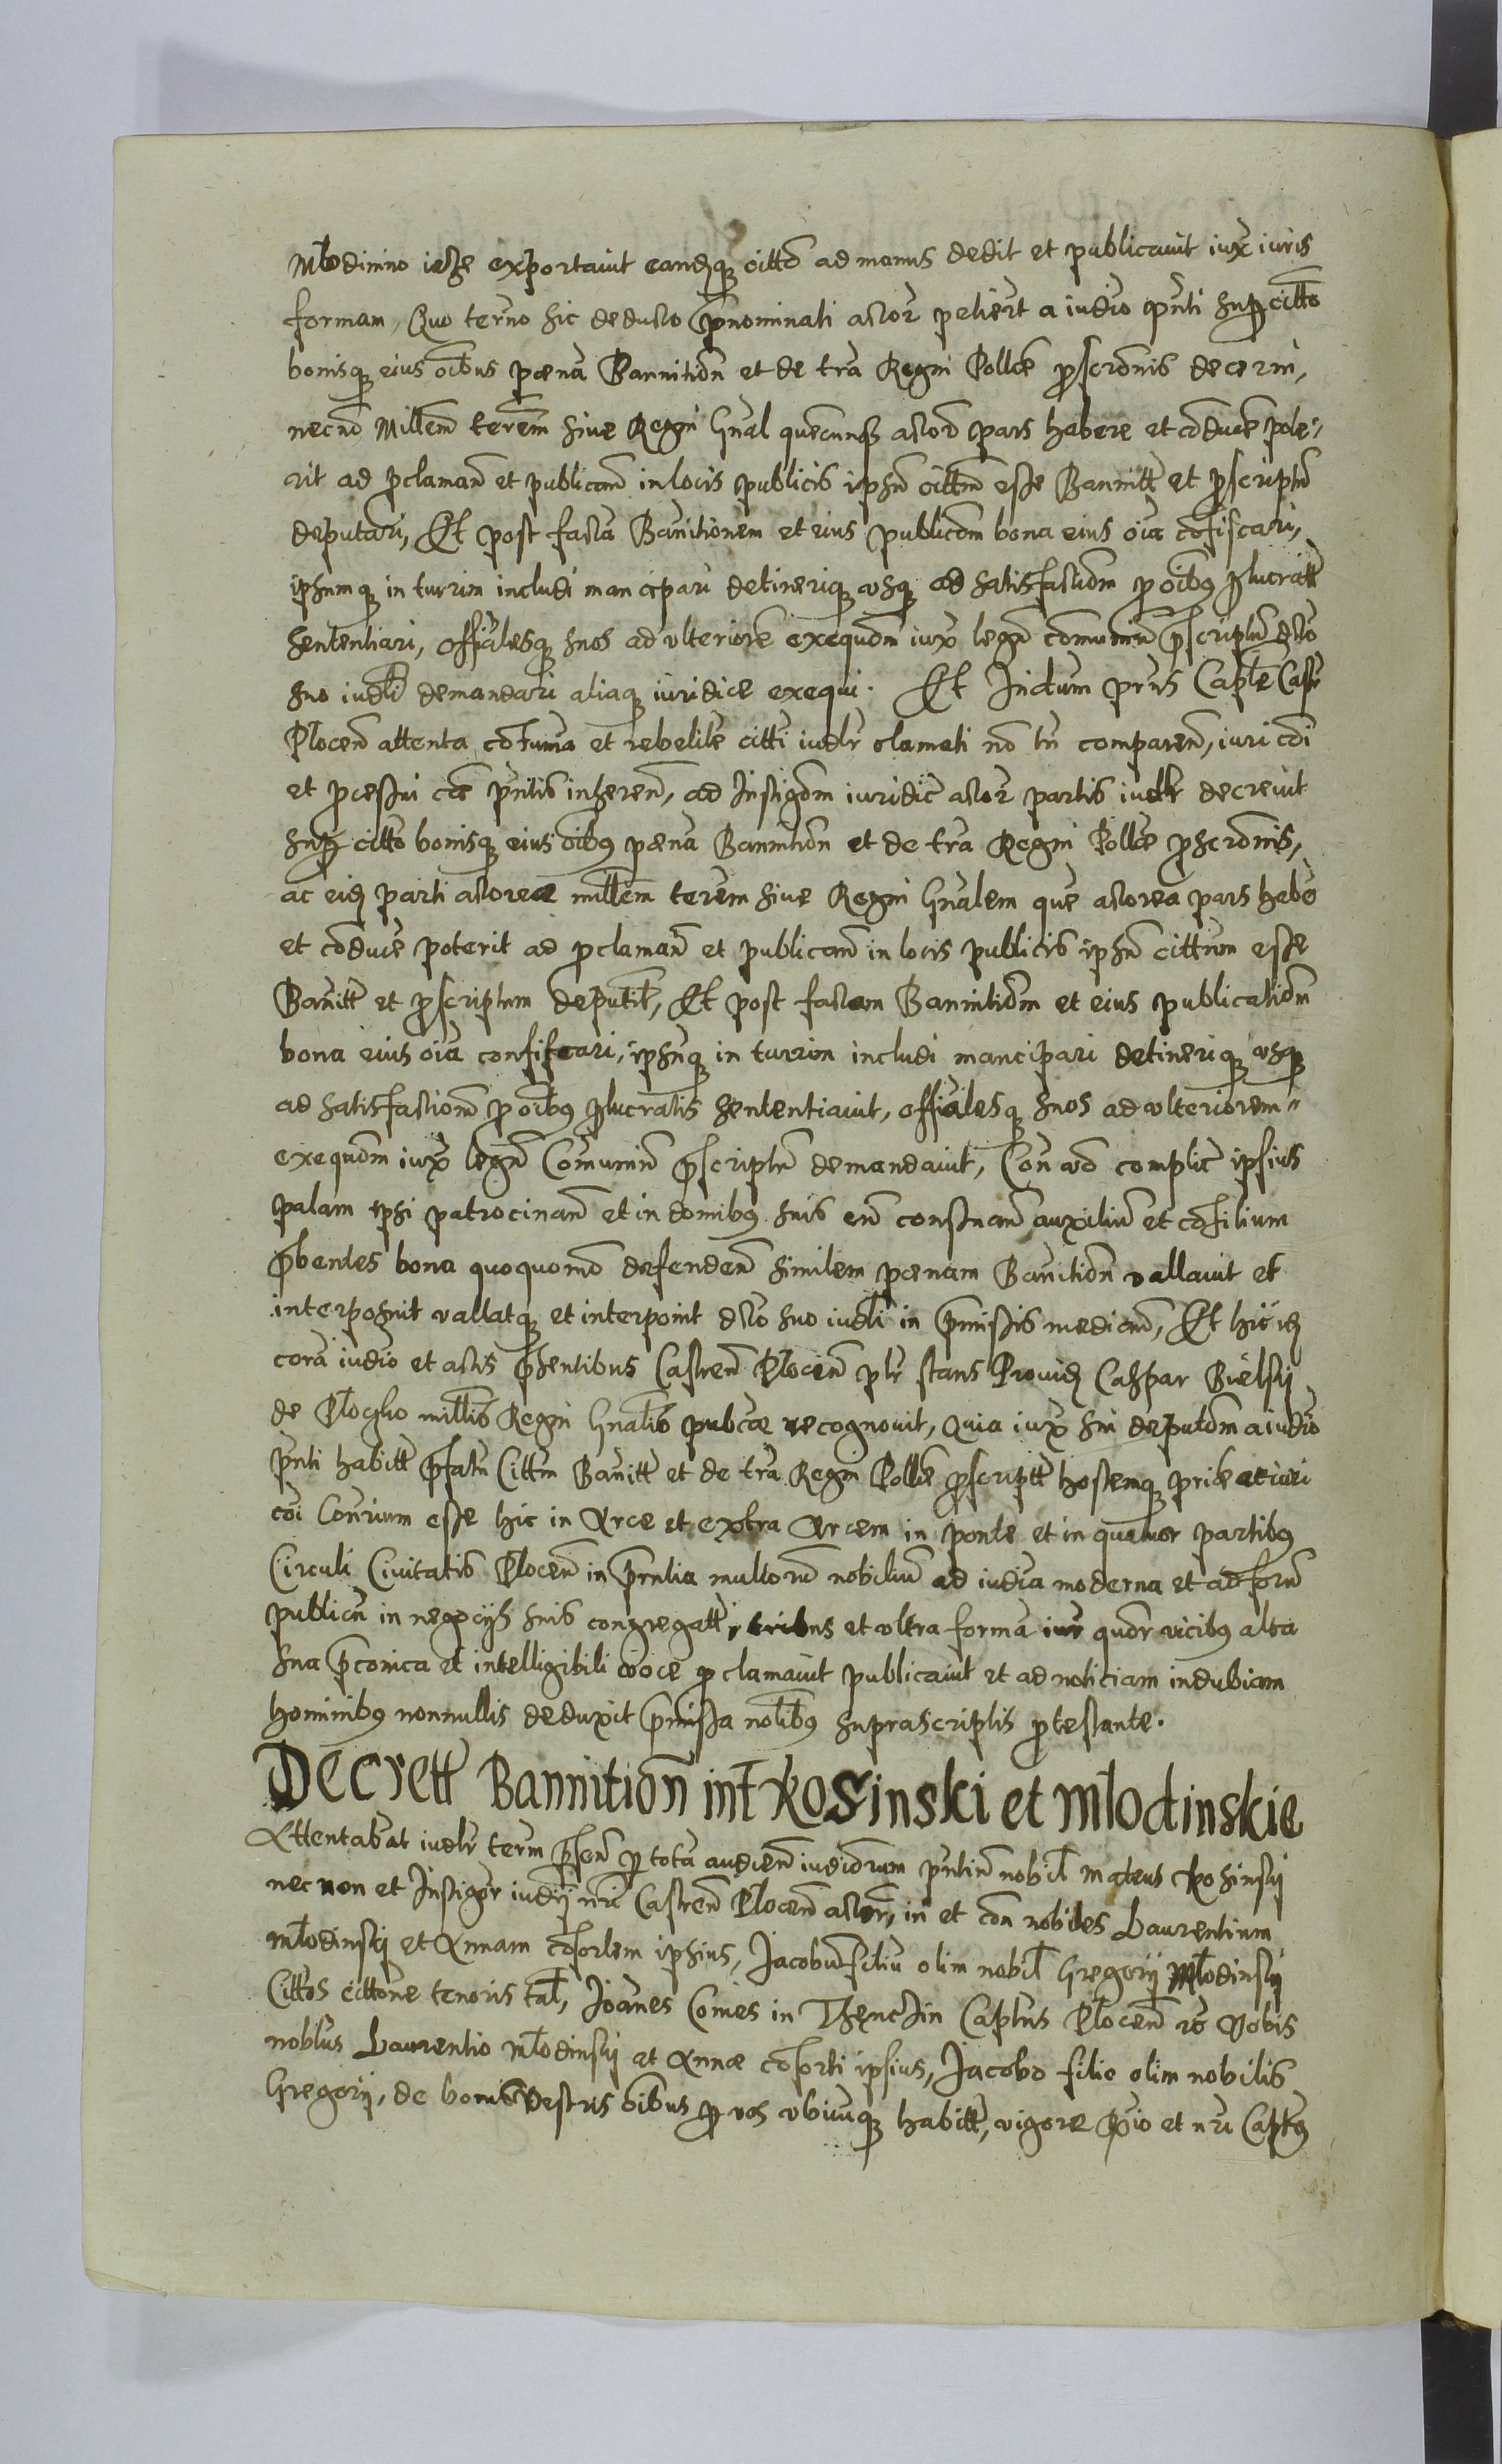 Mlodinino ipse exportavit eandq citto ad manus dedit et publicavit iux iuris
forman, Quo termo hic deducto pnominati actor petiert a iudio pnti sup citto
bonisq eius oibus pœna Bannition et de tra Regni Pollœ pscronis decerni,
necno Millem terrem sive Regni Gnal quecunq actor pars habere et coduce pote-
rit ad pclamand et publicand in locis publicis ipsu cittum esse Bannitt et pscriptu
deputari, Et post facta Banitionem et eius publicaom bona eius oia cofiscari,
ipsumq in turrim includi mancipari detineriq usq ad satisfactiom p oibus plucratt
sententiari, offialesq suos ad ulteriore exequom iux legu comuniu pscriptu dcto
suo iudli demandari aliaq iuridice exequi. Et Iudium prns Caple Castr
Plocen attenta cotumia et rebelile citti iudlr clamati no tn comparen, iuri coi
et pcessui cae pntis inheren, ad Instigom iuridic actor partis iudlr decrevit
sup citto bonisq eius oibus pœna Bannition et de tra Regni Pollœ pscronis,
ac eid parti actoreæ millem terrem sive Regni Gnalem que actorea pars habe
et coduce poterit ad pclamand et publicand in locis publicis ipsu cittum esse
Banitt et pscriptum deputit, Et post factam Bannitiom et eius publicationem
bona eius oia confiscari, ipsuq in turrim includi mancipari detineriq usq
ad satisfactionem p oibus plucratis sententiavit, offialesq suos ad ulteriorem
exequom iux legu Comuniu pscriptu demandavit, Con vo complic ipsius
palam ipsi patrocinan et in domibus suis eu consvan auxiliu et cosilium
pbentes bona quoquomo defenden similem pœnam Banition vallavit et
interposuit vallatq et interponit dcto suo iudli in pmissis median, Et hic id
cora iudio et actis psentibus Castren Plocen plr stans Provid Caspar Bielsy
de Plocsko millis Regni Gnalis pubcæ recognovit, Quia iux sui deputom a iudio
pnti habitt pfatu Cittm Banitt et de tra Regni Pollœ pscriptt hostemq prie et iuri
coi Conrium esse hic in Arce et extra Arcem in ponte et in quatuor partibus
Circuli Civitatis Plocen in pntia multoru nobiliu ad iudia moderna et ad foru
publicu in negocijs suis congregatt, tribus et ultra forma iur quor vicibus alta
sua pconica et intelligibili voce pclamavit publicavit et ad noticiam indubiam
hominibus nonnullis deduxit pmissa nolibus suprascriptis ptestante.
Decrett Bannition int Kosinski et Mlodinskie
Attentabat iudlr term psen p tota audien iudiorum pntiu nobil Mateus Kosinsky
nec non et Instigor iudij nri Castren Plocen actor, in et con nobiles Laurentium
Mlodinsky et Annam cosortem ipsius, Jacobu filiu olim nobil Gregorij Mlodinsky
Cittos cittone tenoris tal, Joanes Comes in Thenczin Capitus Plocen rc Vobis
noblibus Laurentio Mlodinsky et Annæ cosorti ipsius, Jacobo filio olim nobilis
Gregorij, de bonis Vestris oibus p vos ubicuq habitt, vigore Rgio et nri Captus